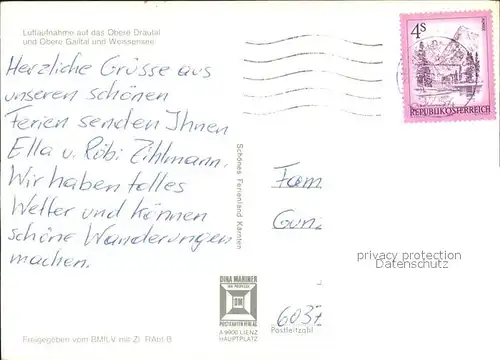 Luftaufnahme auf das Obere Drautal
und Obere Gailtal und Weissensee
Herzliche Grüsse aus
unseren schönen
Ferien senden Ihnen
Ella u. Röbi Zihlmann.
Wir haben tolles
Wetter und können
schöne Wanderungen
machen.
Freigegeben vom BMfLV mit Zl. RAbt B
Schönes Ferienland Kärnten
4S
REPUBLIK ÖSTERREICH
Fam
Gun
privacy protection
Datenschutz
6037
Postleitzahl
DINA MARINER
DM
POSTKARTEN VERLAG
A 9900 LIENZ
HAUPTPLATZ